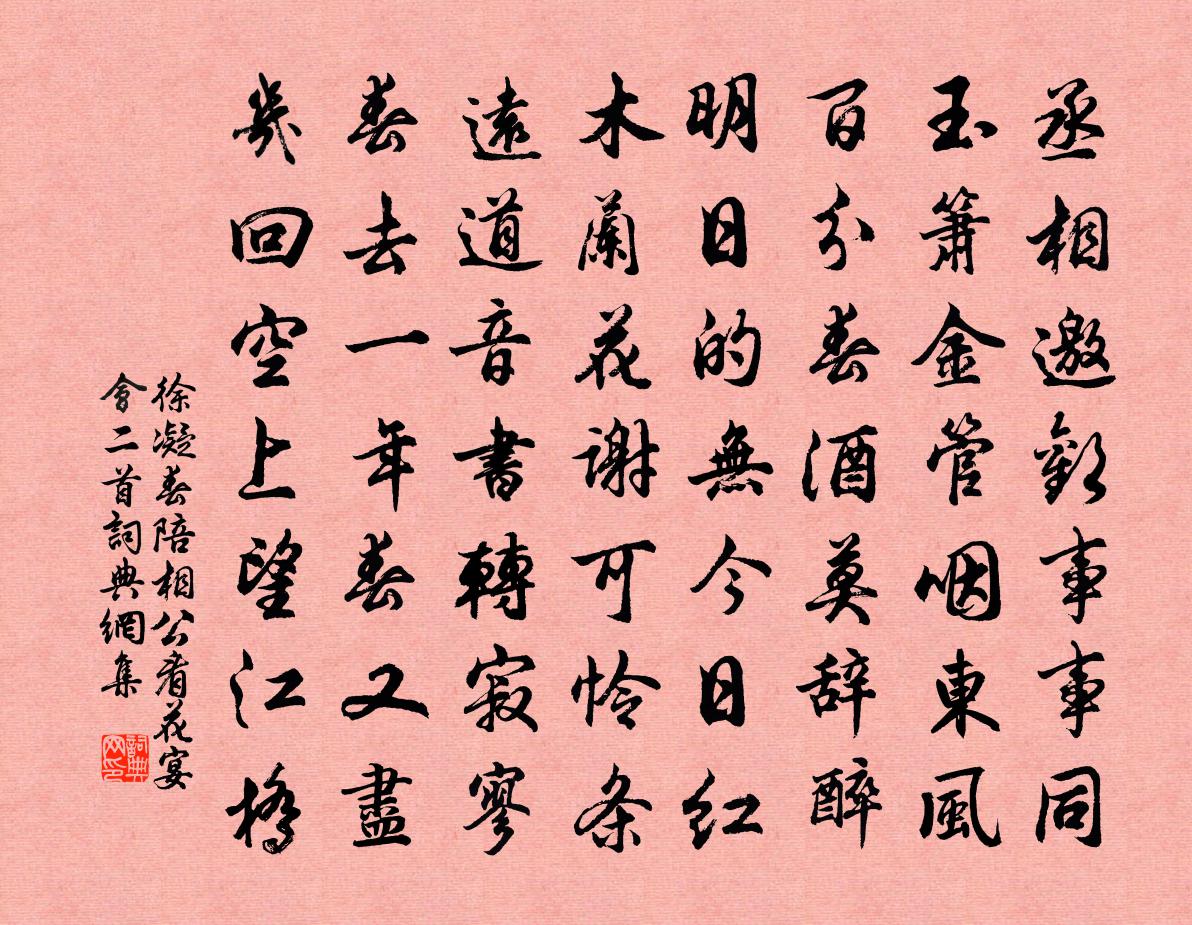 丞相邀歡事事同
玉簫金管咽東風
百分春酒莫辞醉
明日的無今日红
木蘭花謝可怜条
遠道音書轉寂寥
春去一年春又盡
幾回空上望江橋
徐凝春陪相公看花宴
會二首詞典網集
詞典网印